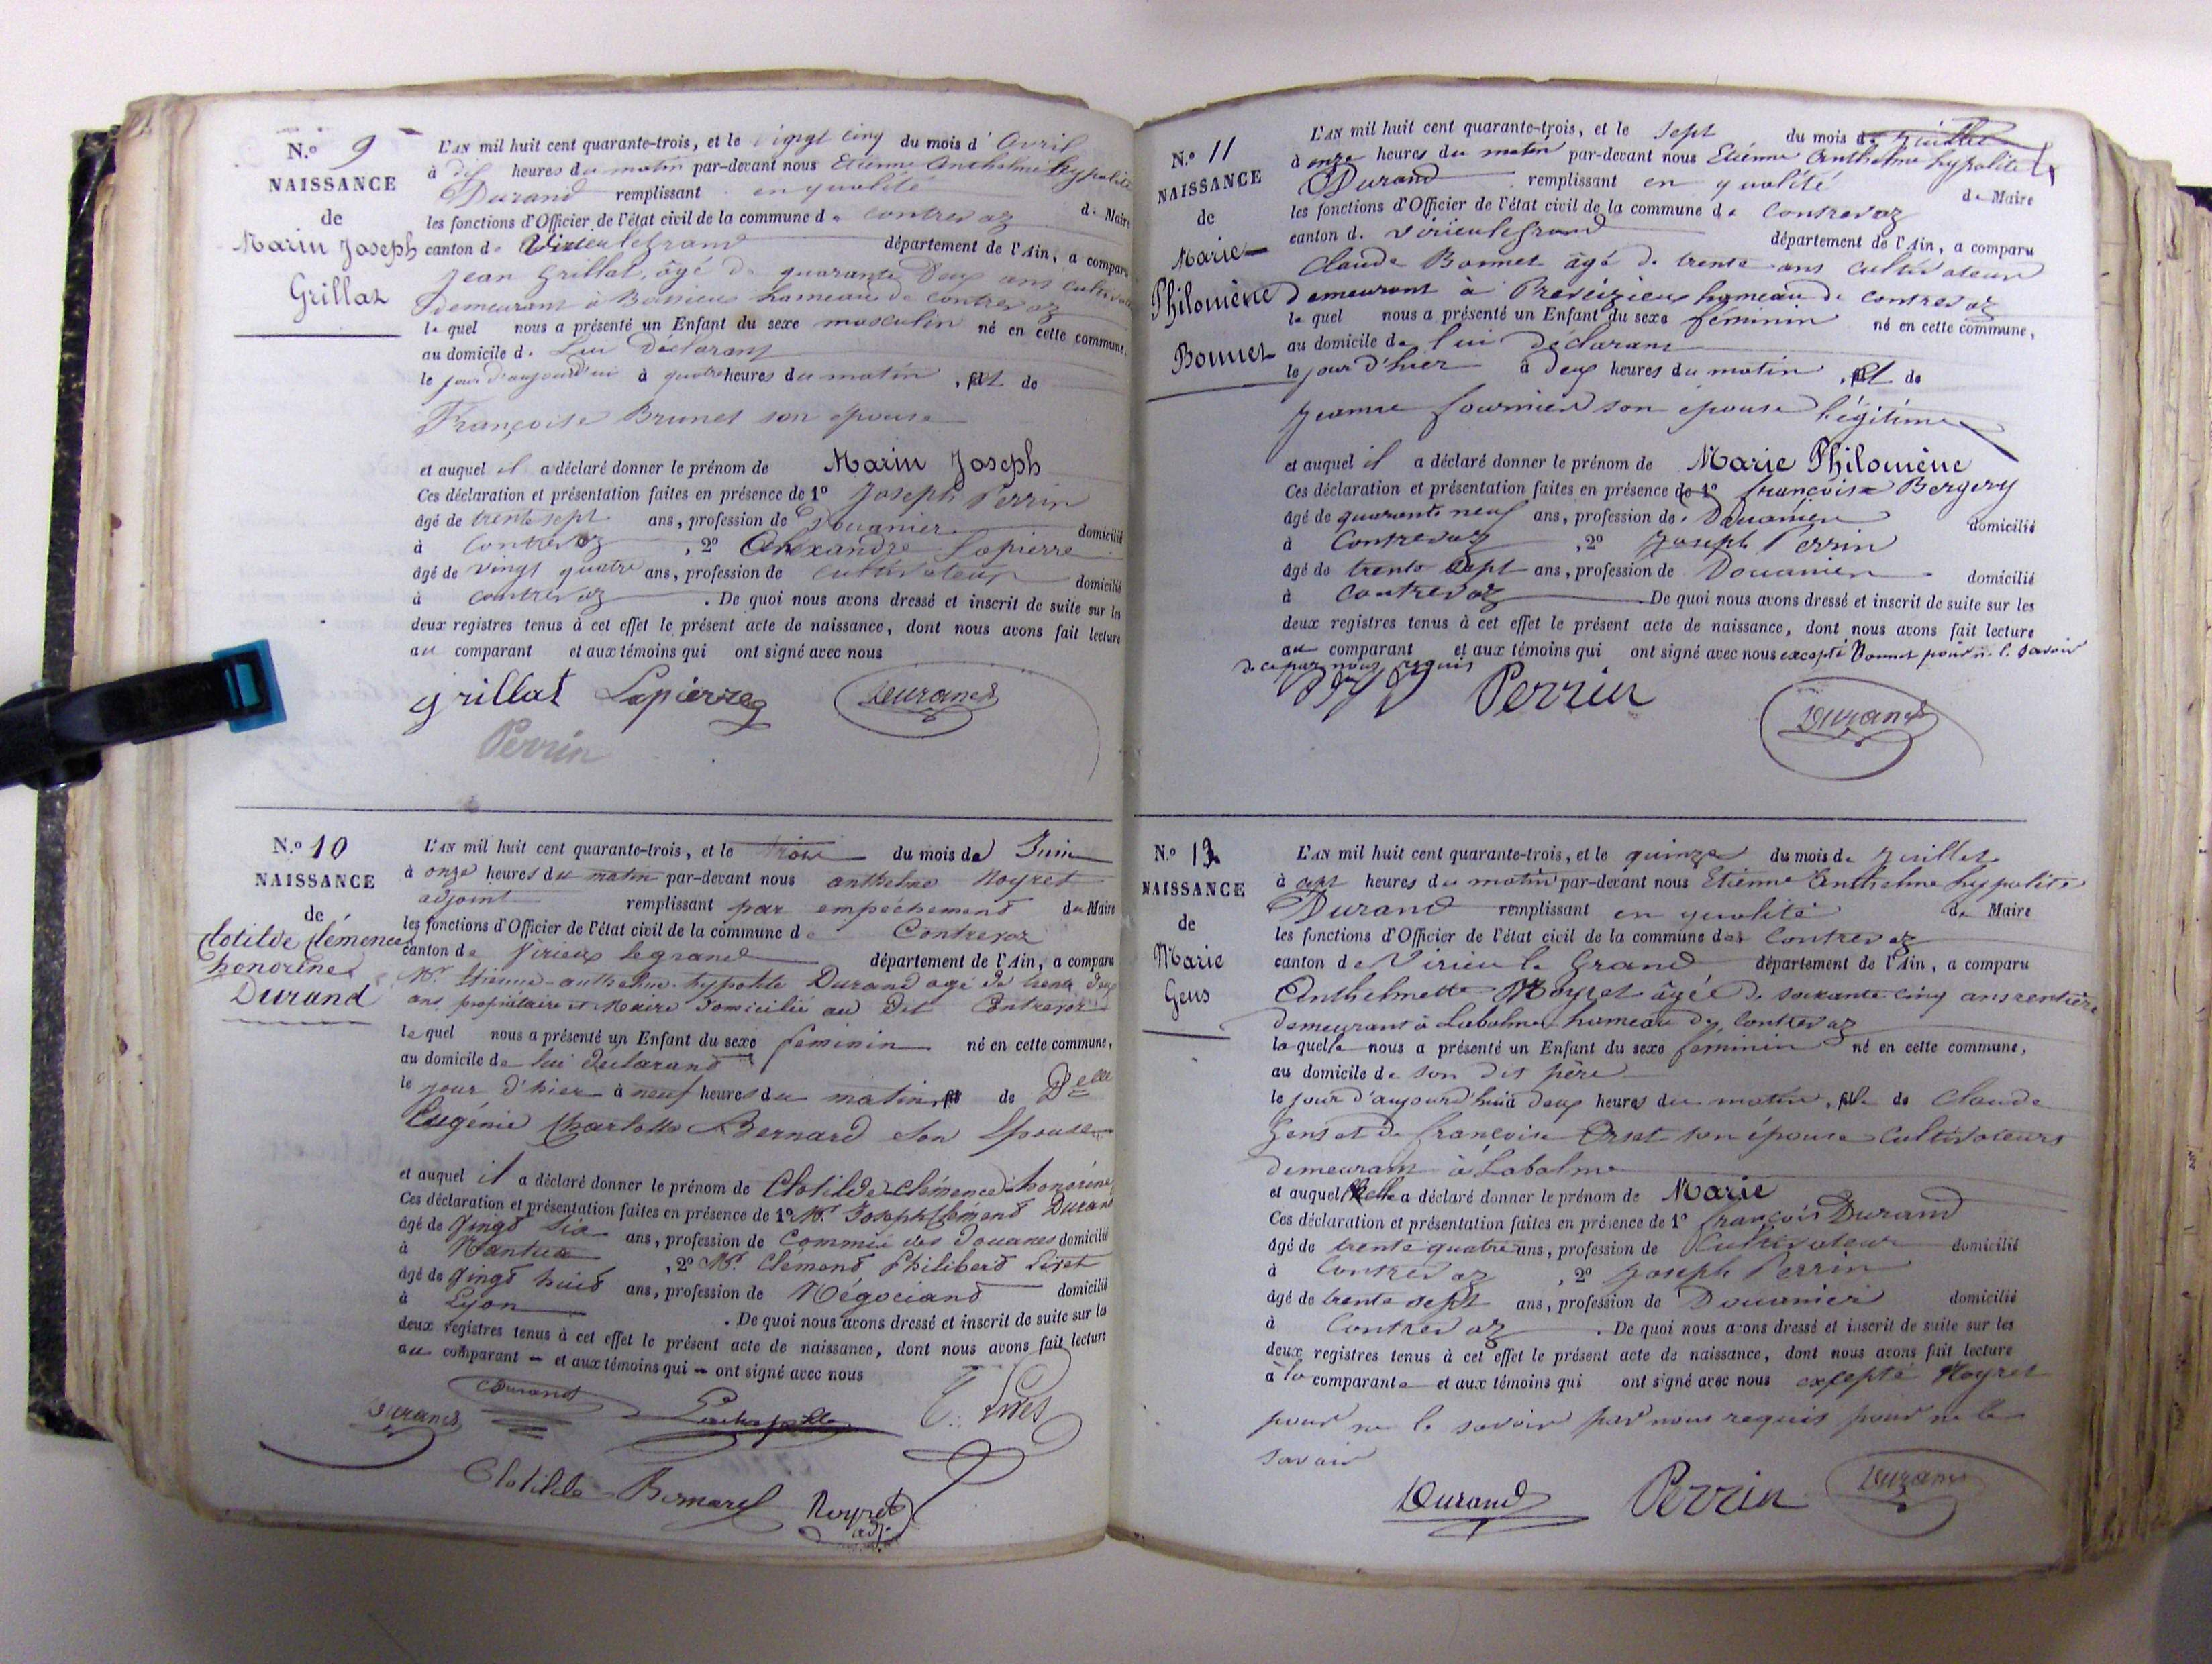 N.° 9
NAISSANCE
de
Marin Joseph
Grillat
L'AN mil huit cent quarante-trois, et le vingt cinq du mois d' Avril
à dix heures du matin par-devant nous Etienne Anthelme hypolite
Durand remplissant en qualité de Maire
les fonctions d'Officier de l'état civil de la commune de Contrevoz
canton de Virieu le grand département de l'Ain, a comparu
Jean Grillat, âgé de quarante deux ans cultivateur
demeurant à hameau de Contrevoz
lequel nous a présenté un Enfant du sexe masculin né en cette commune,
au domicile de Lui Déclarant
le jour d'aujourd'hui à quatre heures du matin, et de
Françoise Brunet son épouse
et auquel il a déclaré donner le prénom de Marin Joseph
Ces déclaration et présentation faites en présence de 1° Joseph Perrin
âgé de trente sept ans, profession de Douanier domicilié
à Contrevoz, 2° Alexandre Lapierre
âgé de vingt quatre ans, profession de cultivateur domicilié
à contrevoz. De quoi nous avons dressé et inscrit de suite sur les
deux registres tenus à cet effet le présent acte de naissance, dont nous avons fait lecture
au comparant et aux témoins qui ont signé avec nous
grillat Lapierre Durand
Perrin
N.° 10
NAISSANCE
de
Clotilde Clémence
honorine
Durand
L'AN mil huit cent quarante-trois, et le trois du mois de Juin
à onze heures du matin par-devant nous anthelme Noyret
adjoint remplissant par empêchement du Maire
les fonctions d'Officier de l'état civil de la commune de Contrevoz
canton de Virieux legrand département de l'Ain, a comparu
Mr. Etienne-anthelme-hypolite Durand agé de trente deux
ans propriétaire et Maire domicilié au dit Contrevoz
lequel nous a présenté un Enfant du sexe feminin né en cette commune,
au domicile de lui déclarand
le jour d'hier à neuf heures du matin, et de Delle
Eugénie Charlotte Bernard son Epouse
et auquel il a déclaré donner le prénom de Clotilde-Clémence-honorine
Ces déclaration et présentation faites en présence de 1° Mr. Joseph Clémend Durand
âgé de Vingt six ans, profession de Commis des Douanes domicilié
à Nantua, 2° Mr. Clémend Philibert
âgé de Vingt huit ans, profession de Négociand domicilié
à Lyon. De quoi nous avons dressé et inscrit de suite sur les
deux registres tenus à cet effet le présent acte de naissance, dont nous avons fait lecture
au comparant et aux témoins qui ont signé avec nous
Durand Durand
Clotilde Bernard Noyret
adj.
N.° 11
NAISSANCE
de
Marie
Philomène
Bonnet
L'AN mil huit cent quarante-trois, et le sept du mois de Juillet
à onze heures du matin par-devant nous Etienne Anthelme hypolite
Durand remplissant en qualité de Maire
les fonctions d'Officier de l'état civil de la commune de Contrevoz
canton de Virieu le Grand département de l'Ain, a comparu
Claude Bonnet âgé de trente ans cultivateur
Demeurant à Preveizieu hameau de contrevoz
lequel nous a présenté un Enfant du sexe féminin né en cette commune,
au domicile de lui déclarant
le jour d'hier à deux heures du matin, et de
Jeanne fournier son épouse légitime
et auquel il a déclaré donner le prénom de Marie Philomène
Ces déclaration et présentation faites en présence de 1° françoise Bergery
âgé de quarante neuf ans, profession de Douanier domicilié
à Contrevoz, 2° Joseph Perrin
âgé de trente sept ans, profession de Douanier domicilié
à Contrevoz De quoi nous avons dressé et inscrit de suite sur les
deux registres tenus à cet effet le présent acte de naissance, dont nous avons fait lecture
au comparant et aux témoins qui ont signé avec nous excepté Bonnet pour ne le savoir
de ce par nous requis
Perrin Durand
N.° 12
NAISSANCE
de
Marie
Gens
L'AN mil huit cent quarante-trois, et le quinze du mois de Juillet
à sept heures du matin par-devant nous Etienne Anthelme hypolite
Durand remplissant en qualité de Maire
les fonctions d'Officier de l'état civil de la commune de Contrevoz
canton de Virieu le Grand département de l'Ain, a comparu
Anthelmette Noyret âgée de soixante cinq ans rentière
demeurant à Labalme hameau de Contrevoz
laquelle nous a présenté un Enfant du sexe féminin né en cette commune,
au domicile de son dit père
le jour d'aujourd'hui à deux heures du matin, fille de Claude
Gens et de françoise Orset son épouse Cultivateurs
demeurant à Labalme
et auquel elle a déclaré donner le prénom de Marie
Ces déclaration et présentation faites en présence de 1° françois Durand
âgé de trente quatre ans, profession de Cultivateur domicilié
à Contrevoz, 2° Joseph Perrin
âgé de trente sept ans, profession de Douanier domicilié
à Contrevoz. De quoi nous avons dressé et inscrit de suite sur les
deux registres tenus à cet effet le présent acte de naissance, dont nous avons fait lecture
à la comparante et aux témoins qui ont signé avec nous excepté Noyret
pour ne le savoir par nous requis pour ne le
savoir
Durand Perrin Durand